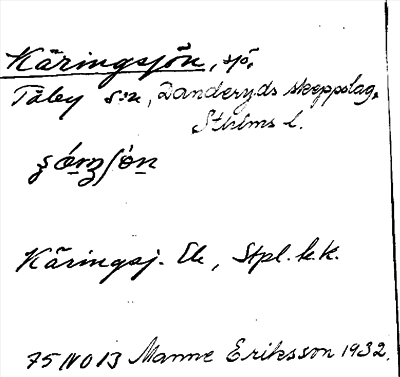 Käringsjön, sjö,
Täby s:n, Danderyds skeppslag,
Sthlms l.
Käringsj. Ek, Stpl. b.k.
75 NO 13 Manne Eriksson 1932.